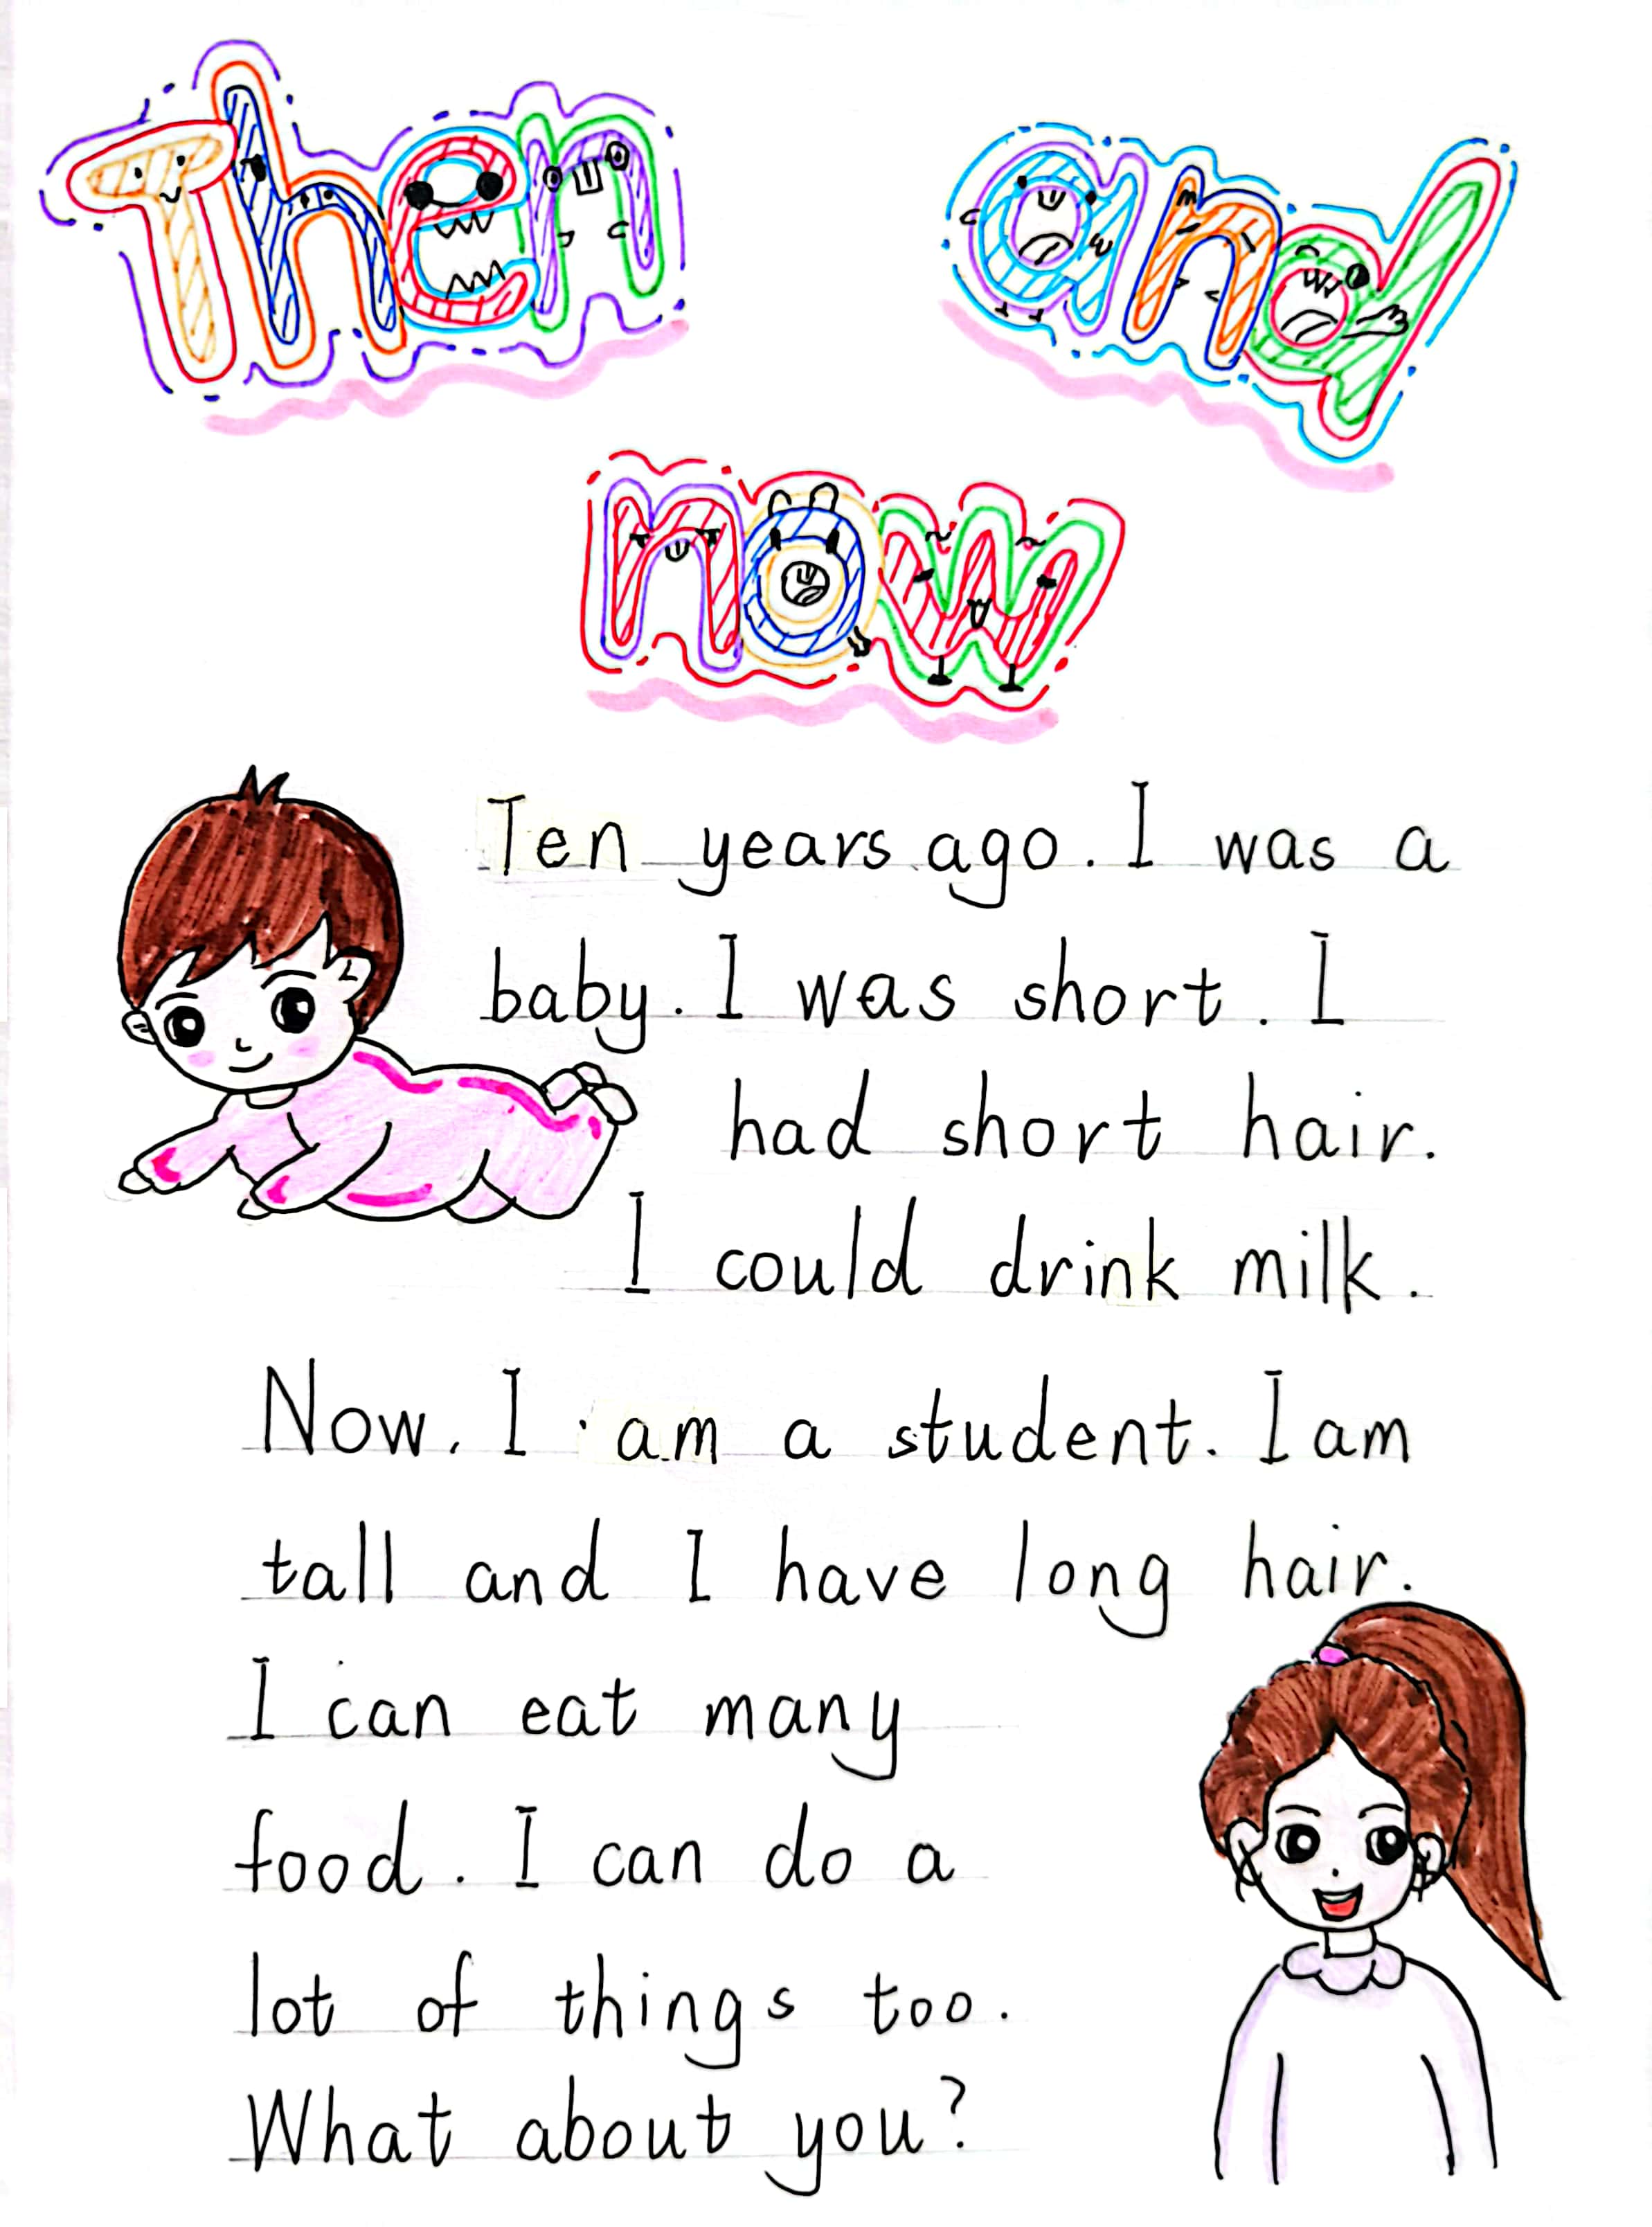 Then and
now
Ten years ago. I was a
baby. I was short. I
had short hair.
I could drink milk.
Now, I am a student. I am
tall and I have long hair.
I can eat many
food. I can do a
lot of things too.
What about you?